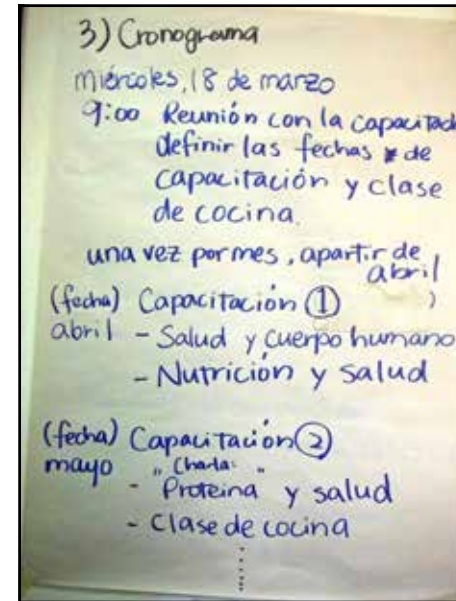 3) Cronograma
miércoles, 18 de marzo
9:00 Reunión con la capacitad
definir las fechas de
capacitación y clase
de cocina.
una vez por mes, apartir de
abril
(fecha) Capacitación ①
abril - Salud y cuerpo humano
- Nutrición y salud
(fecha) Capacitación ②
mayo " Charla: "
- Proteina y salud
- Clase de cocina